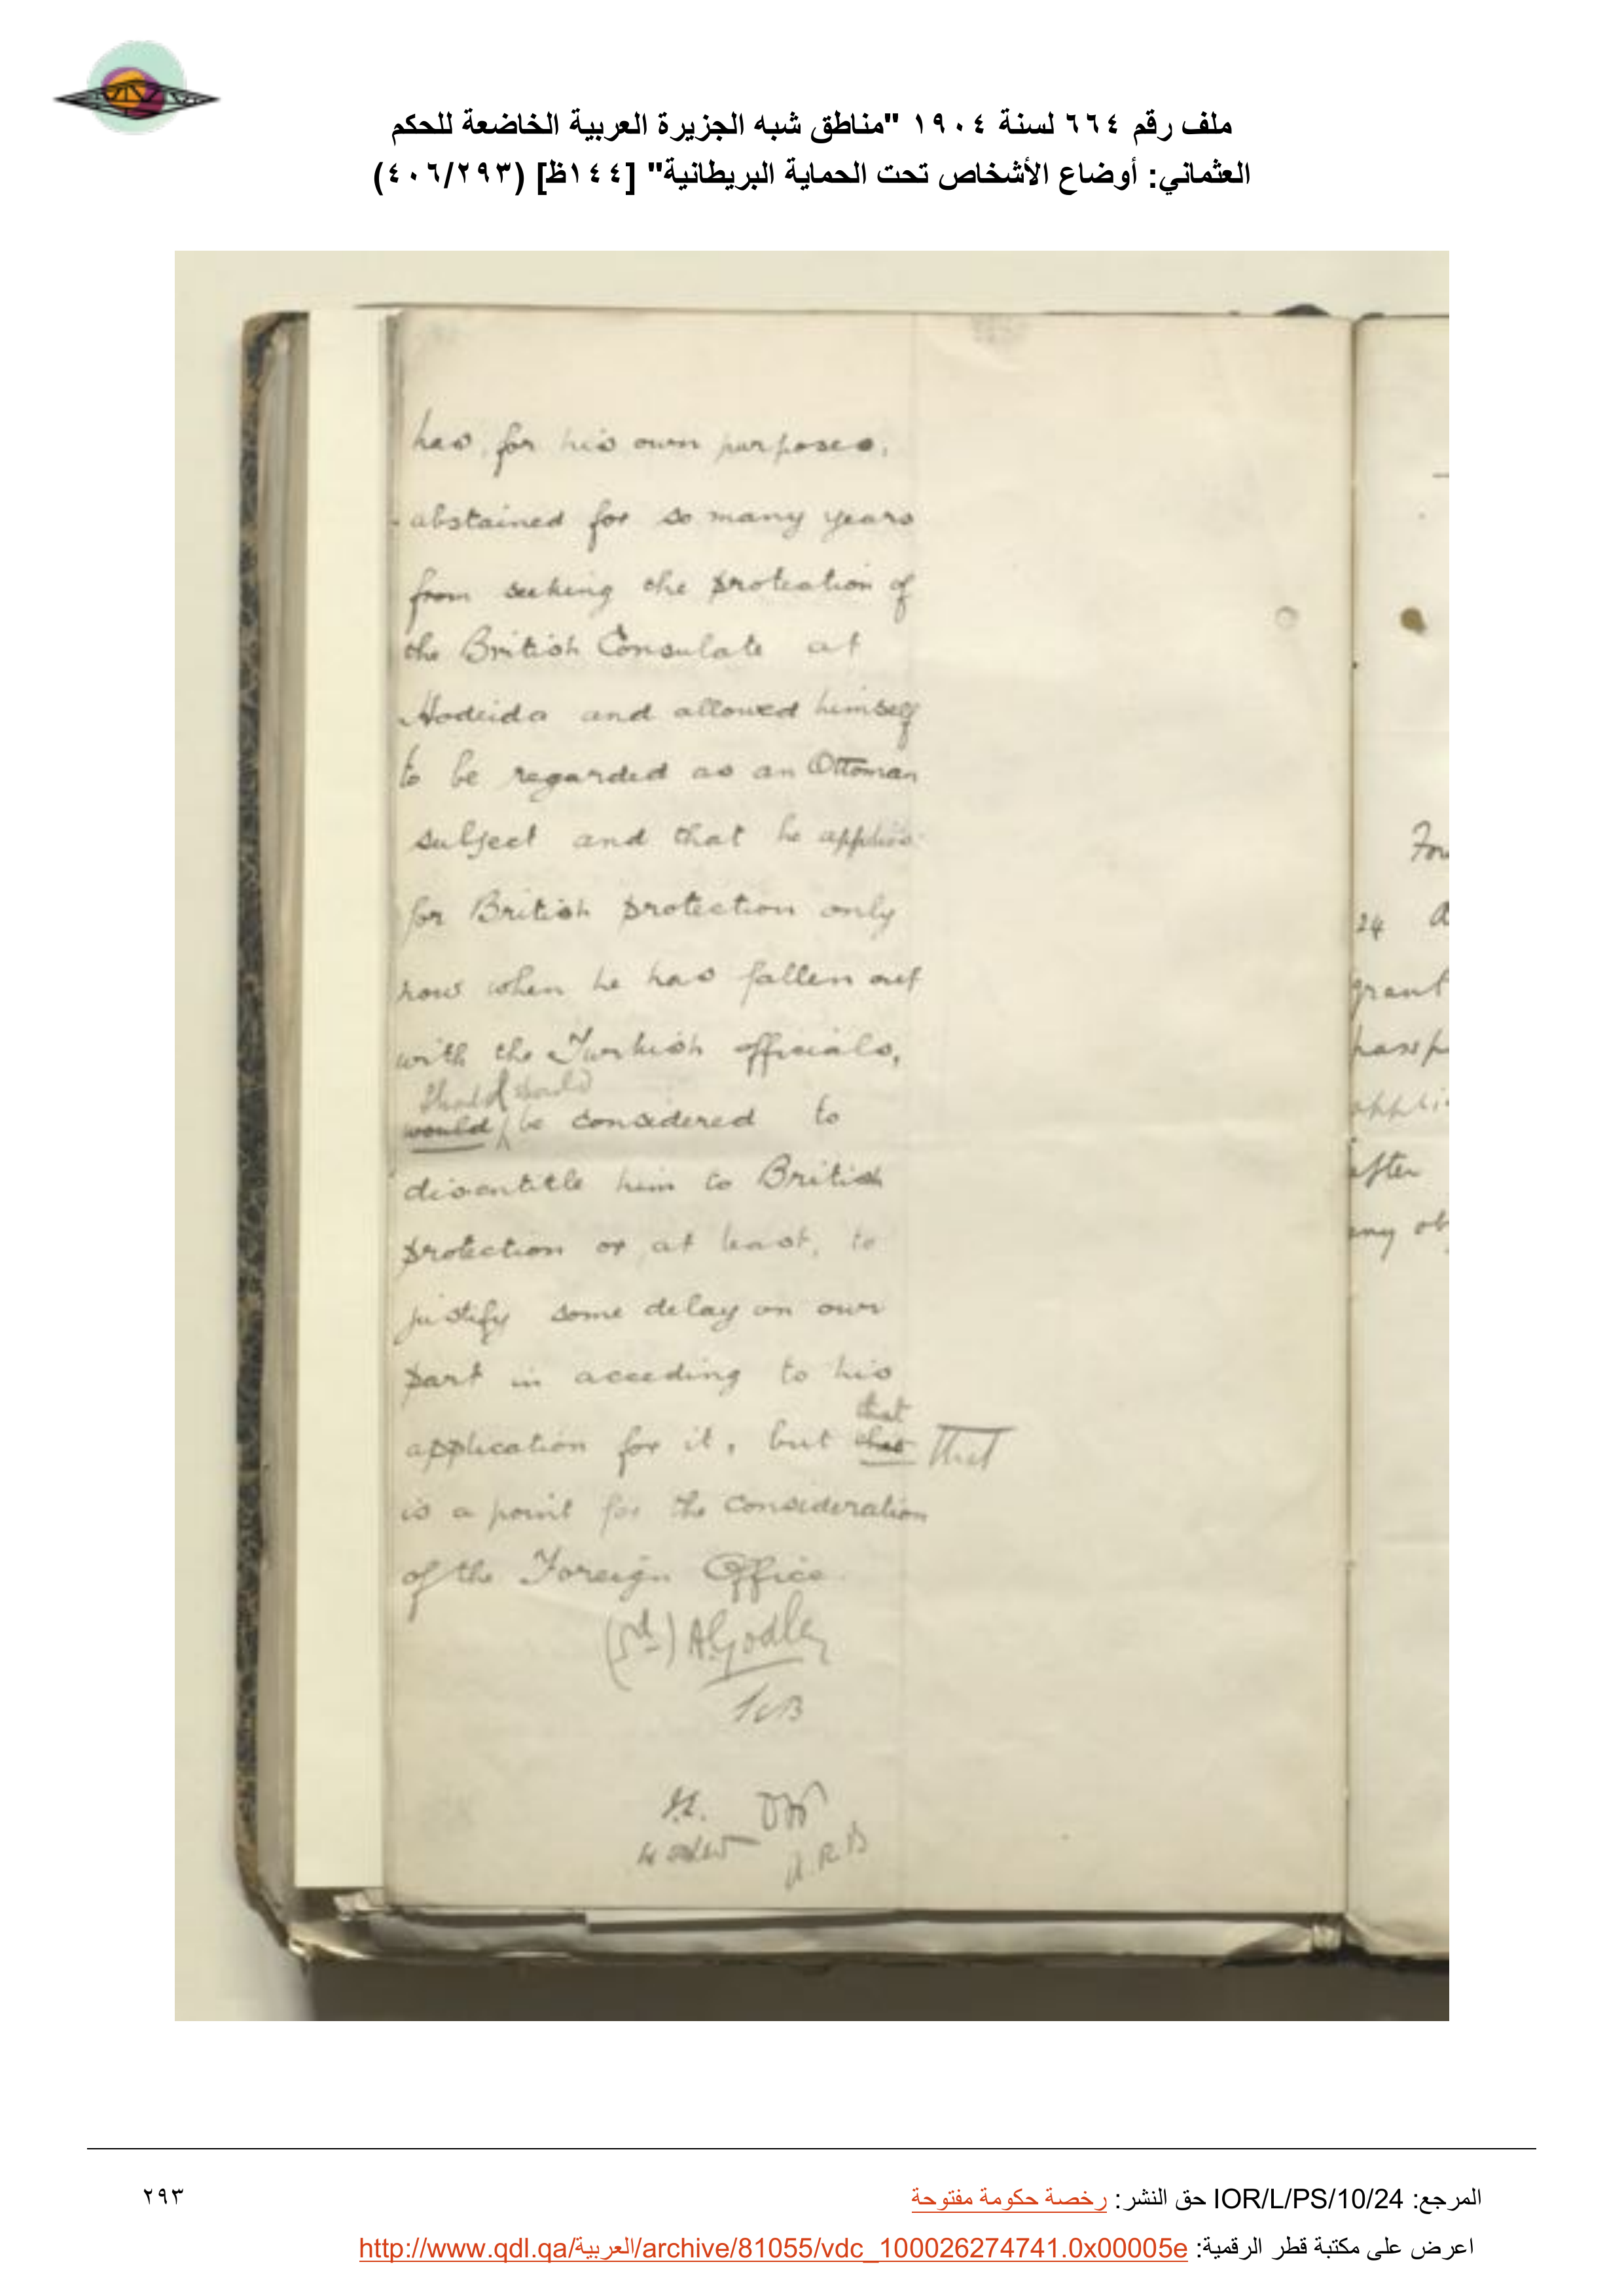 ملف رقم ٦٦٤ لسنة ١٩٠٤ "مناطق شبه الجزيرة العربية الخاضعة للحكم
العثماني: أوضاع الأشخاص تحت الحماية البريطانية" [١٤٤ظ] (٤٠٦/٢٩٣)
has, for his own purposes,
abstained for so many years
from seeking the protection of
the British Consulate at
Hodeida and allowed himself
to be regarded as an Ottoman
subject and that he applies
for British protection only
now when he has fallen out
with the Turkish officials,
should should
would be considered to
disentitle him to British
protection or, at least, to
justify some delay on our
part in acceding to his
that
application for it, but this that
is a point for the consideration
of the Foreign Office
(sd) A Godley
A.R.B
Fou
24 a
grant
passp
appli
after
any ob
المرجع: IOR/L/PS/10/24 حق النشر: رخصة حكومة مفتوحة
٢٩٣
اعرض على مكتبة قطر الرقمية: http://www.qdl.qa/العربية/archive/81055/vdc_100026274741.0x00005e